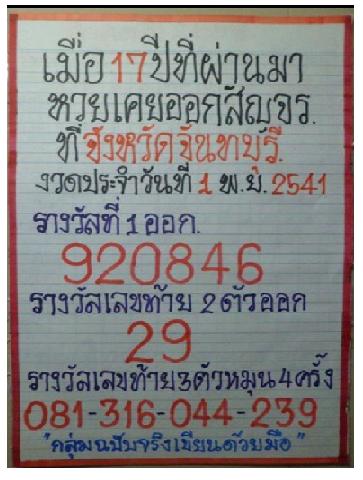 เมื่อ 17 ปีที่ผ่านมา
หวยเคยออกสัญจร.
ที่ จังหวัดจันทบุรี.
งวดประจำวันที่ 1 พ.ย. 2541
รางวัลที่ 1 ออก.
920846
รางวัลเลขท้าย 2 ตัวออก
29
รางวัลเลขท้าย 3 ตัวหมุน 4 ครั้ง
081-316-044-239
"กลุ่มฉบับจริงเขียนด้วยมือ"